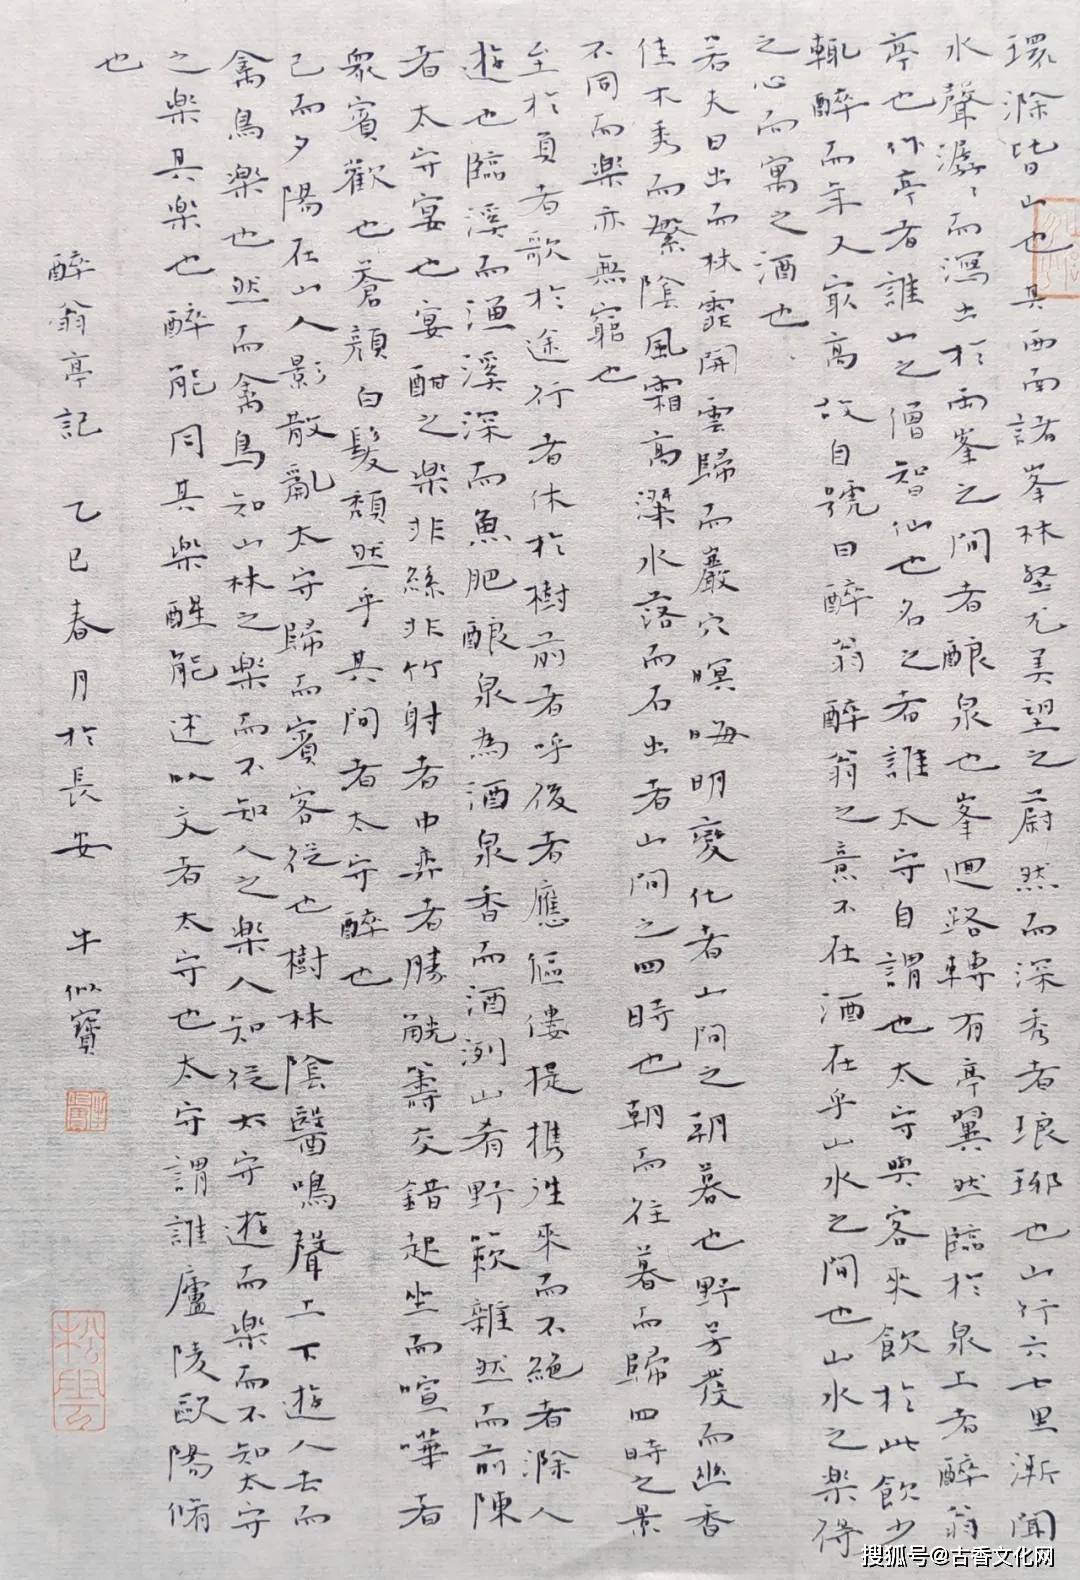 環滁皆山也其西南諸峯林壑尤美望之蔚然而深秀者琅琊也山行六七里漸聞
水聲潺〻而瀉出於兩峯之間者釀泉也峯迴路轉有亭翼然臨於泉上者醉翁
亭也作亭者誰山之僧智仙也名之者誰太守自謂也太守與客來飲於此飲少
輒醉而年又最高故自號曰醉翁醉翁之意不在酒在乎山水之間也山水之樂得
之心而寓之酒也
若夫日出而林霏開雲歸而巖穴暝晦明變化者山間之朝暮也野芳發而幽香
佳木秀而繁陰風霜高潔水落而石出者山間之四時也朝而往暮而歸四時之景
不同而樂亦無窮也
至於負者歌於途行者休於樹前者呼後者應傴僂提攜往來而不絕者滁人
遊也臨溪而漁溪深而魚肥釀泉為酒泉香而酒洌山肴野蔌雜然而前陳
者太守宴也宴酣之樂非絲非竹射者中弈者勝觥籌交錯起坐而喧嘩者
眾賓歡也蒼顏白髮頹然乎其間者太守醉也
已而夕陽在山人影散亂太守歸而賓客從也樹林陰翳鳴聲上下遊人去而
禽鳥樂也然而禽鳥知山林之樂而不知人之樂人知從太守遊而樂而不知太守
之樂其樂也醉能同其樂醒能述以文者太守也太守謂誰廬陵歐陽脩
也
醉翁亭記 乙巳春月於長安 牛似寶
搜狐号@古香文化网